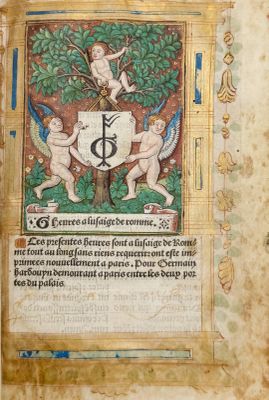 Heures a lusaige de romme.
Ces presentes heures sont a lusaige de Rom-
me tout au long sans riens requerir: ont este im-
primees nouuellement a paris. Pour Germain
hardouyn demourant a paris entre les deux por-
tes du palais.